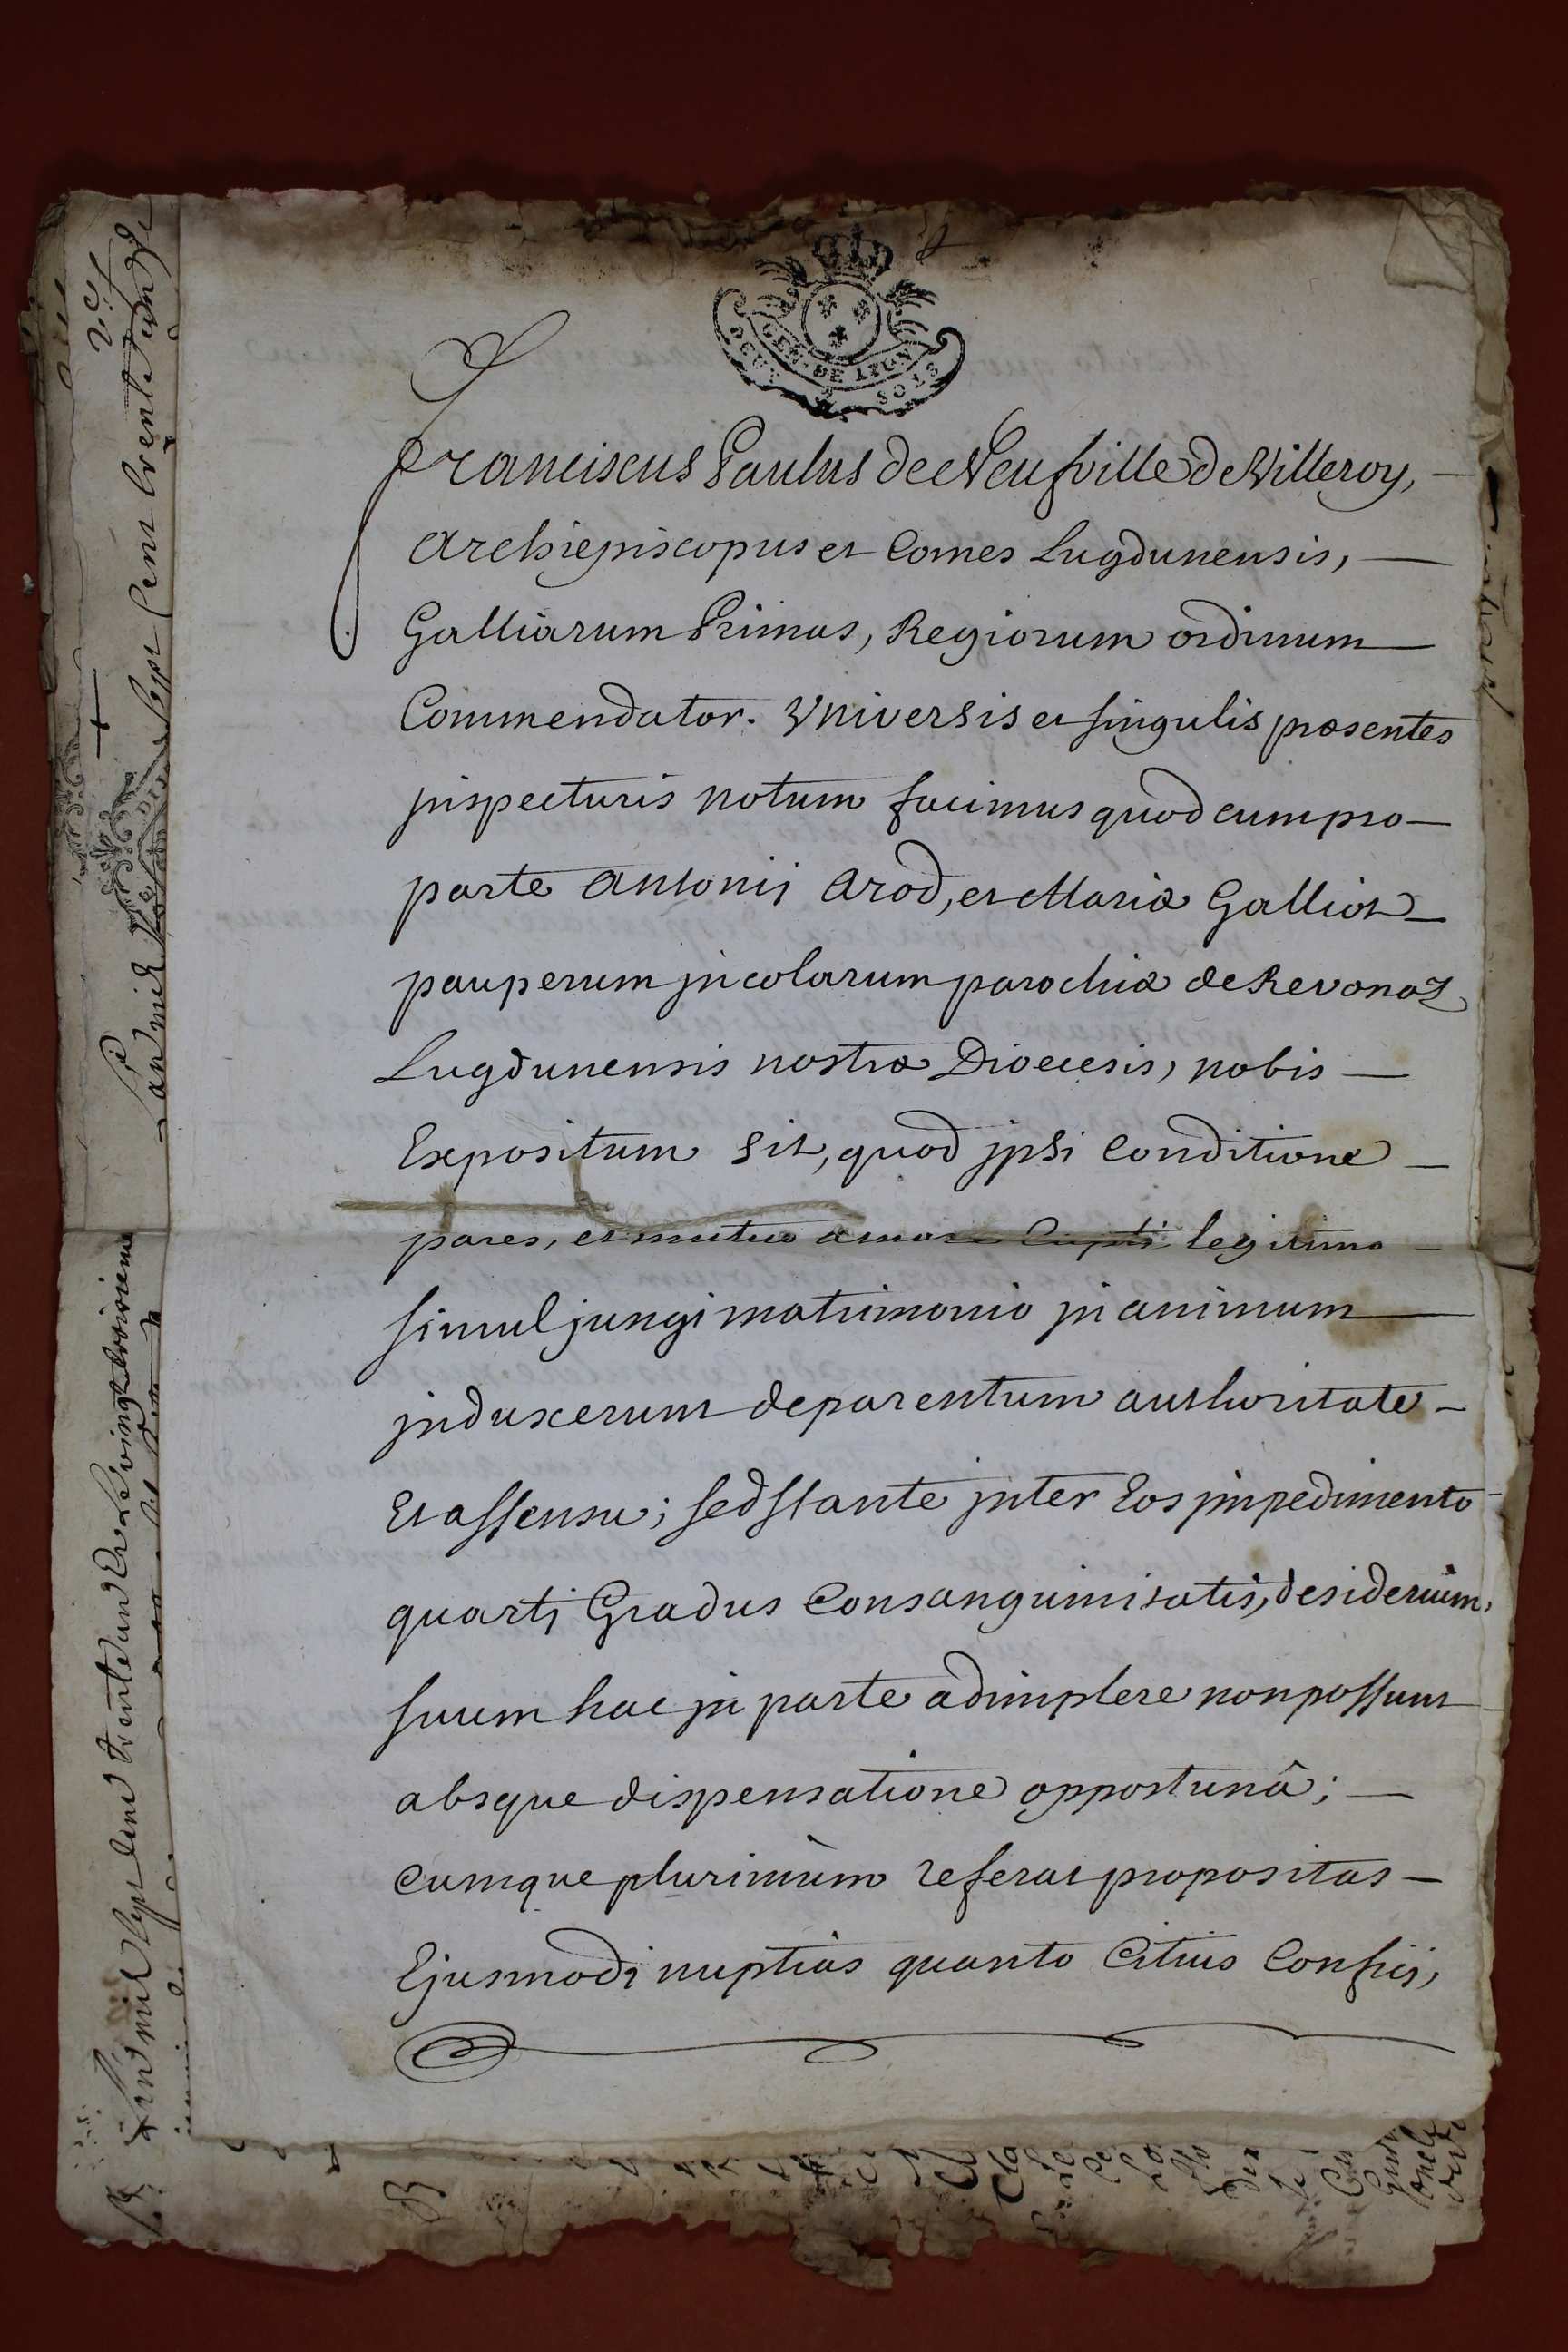 GEN. DE LYON
DEUX SOLS
Franciscus Paulus de Neufville de Villeroy,
Archiepiscopus et Comes Lugdunensis,
Galliarum Primas, Regiorum ordinum
Commendator. Vniversis et singulis præsentes
jnspecturis notum facimus quod cum pro
parte Antonij Arod, et Mariæ Galliot
pauperum jncolarum parochiæ de Revonaz
Lugdunensis nostræ Diœcesis, nobis
Expositum sit, quod jpsi conditione
pares, et mutuo amore Capti legitimo
simul jungi matrimonio jn animum
jnduxerunt de parentum authoritate
Et assensu; sed stante jnter Eos jmpedimento
quarti Gradus Consanguinitatis, desiderium,
suum hac jn parte adimplere non possunt
absque dispensatione opportunâ;
cumque plurimùm referat propositas
Ejusmodi nuptias quanto Citius Confici,